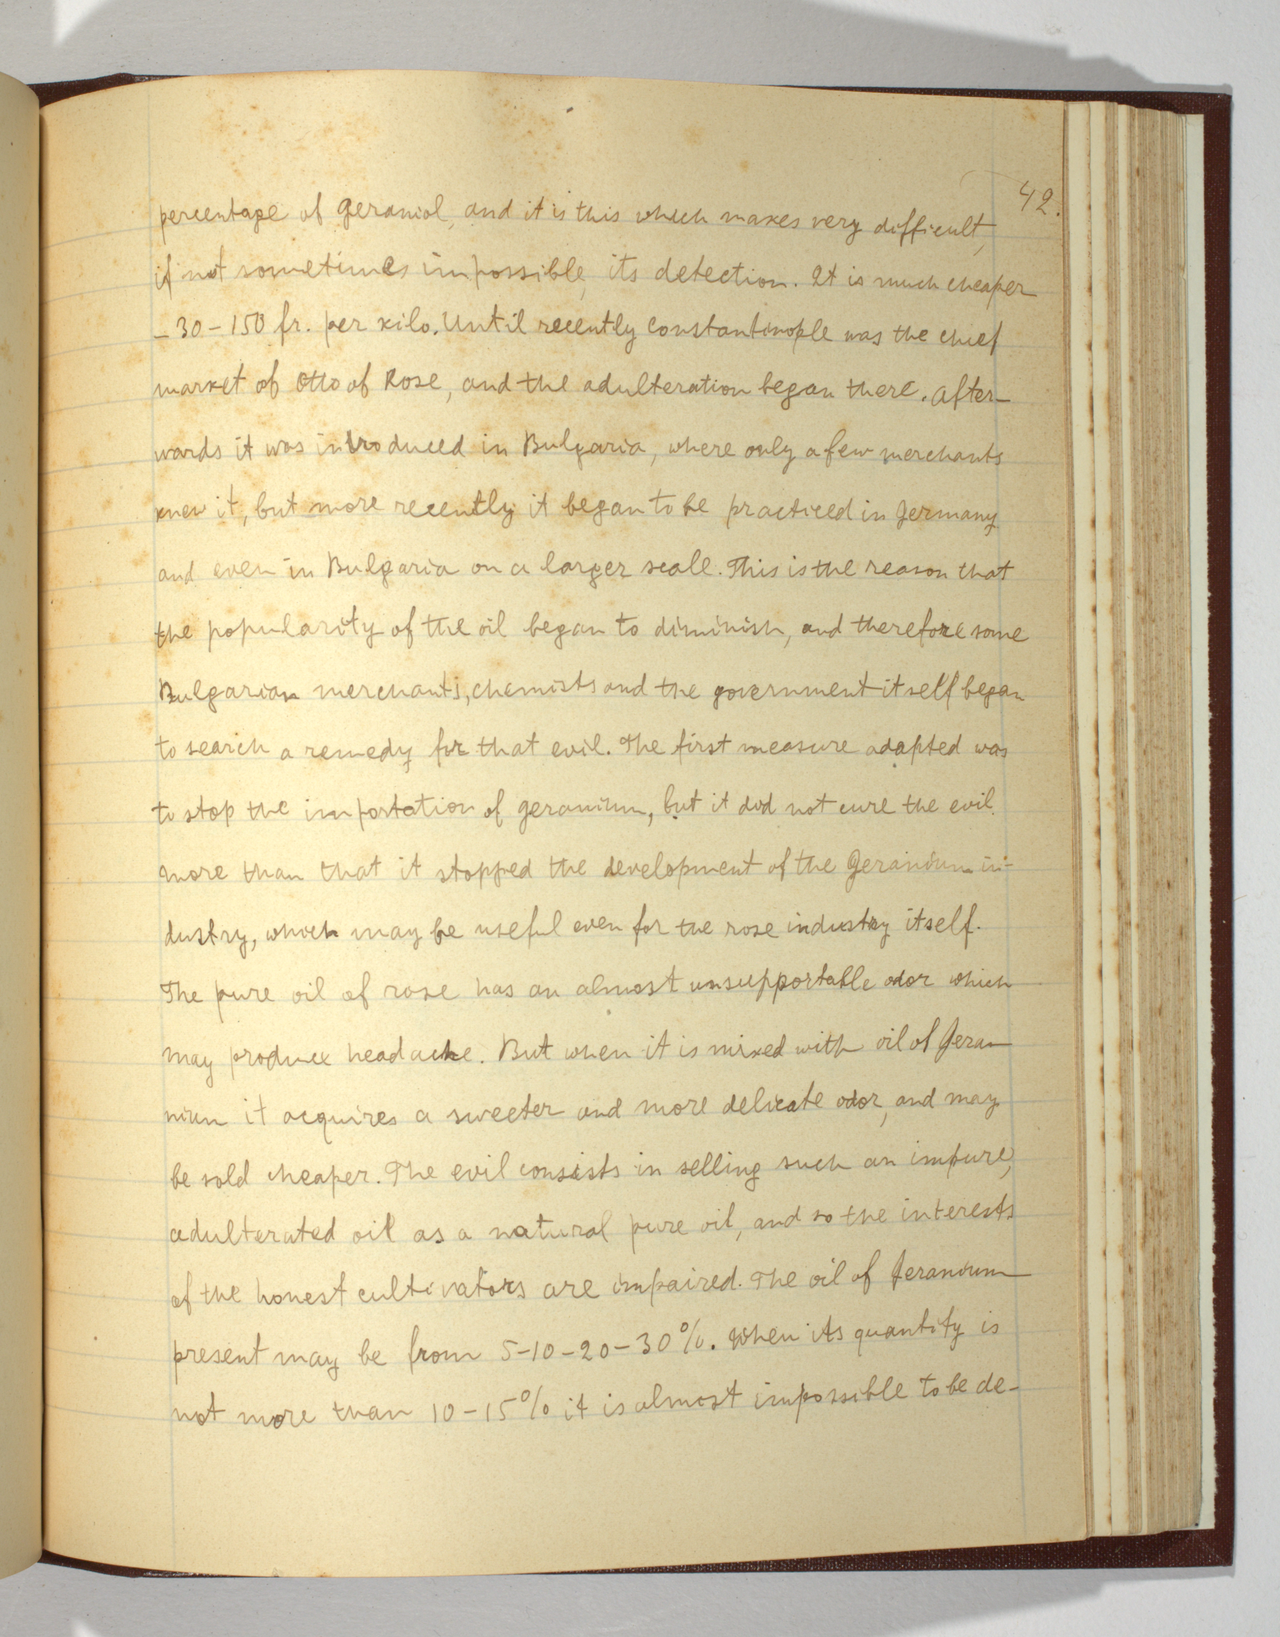 42.
percentage of geraniol, and it is this which makes very difficult,
if not sometimes impossible, its detection. It is much cheaper
– 30 – 150 fr. per kilo. Until recently Constantinople was the chief
market of Otto of Rose, and the adulteration began there. After-
wards it was introduced in Bulgaria, where only a few merchants
knew it, but more recently it began to be practiced in Germany
and even in Bulgaria on a larger scale. This is the reason that
the popularity of the oil began to diminish, and therefore some
Bulgarian merchants, chemists and the government itself began
to search a remedy for that evil. The first measure adapted was
to stop the importation of geranium, but it did not cure the evil.
more than that it stopped the development of the Geranium in-
dustry, which may be useful even for the rose industry itself.
The pure oil of rose has an almost unsupportable odor which
may produce headache. But when it is mixed with oil of Gera-
nium it acquires a sweeter and more delicate odor, and may
be sold cheaper. The evil consists in selling such an impure,
adulterated oil as a natural pure oil, and so the interests
of the honest cultivators are impaired. The oil of Geranium
present may be from 5–10–20–30%. When its quantity is
not more than 10–15% it is almost impossible to be de-